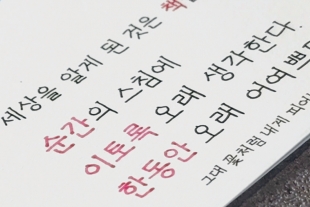 세상을 알게 된 것은 책
순간의 스침에
이토록 오래 생각한다.
한동안 오래 어여쁘
그대 꽃처럼 내게 피어